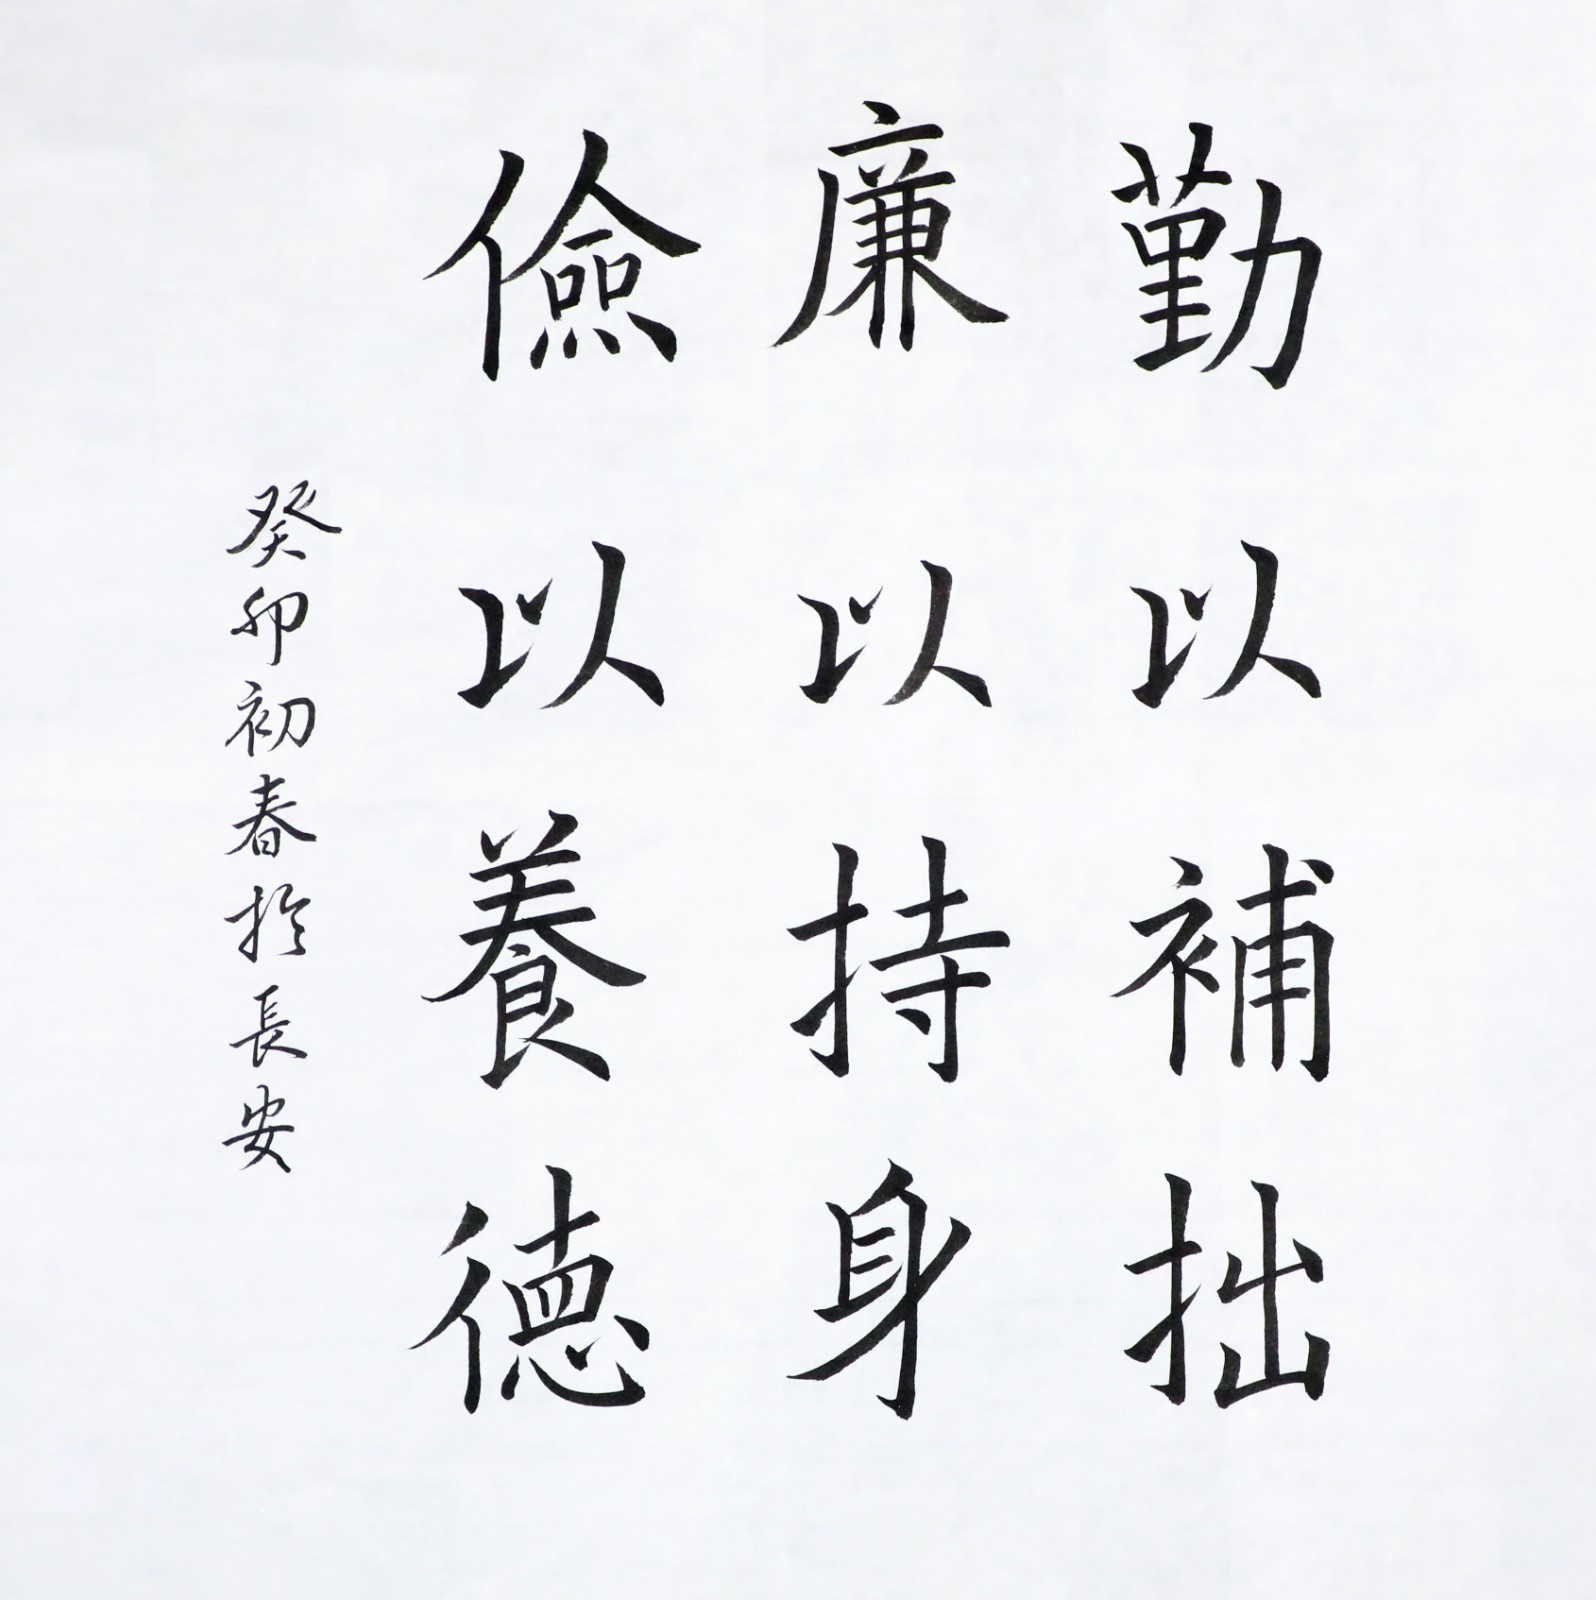 勤以補拙
廉以持身
儉以養德
癸卯初春於長安